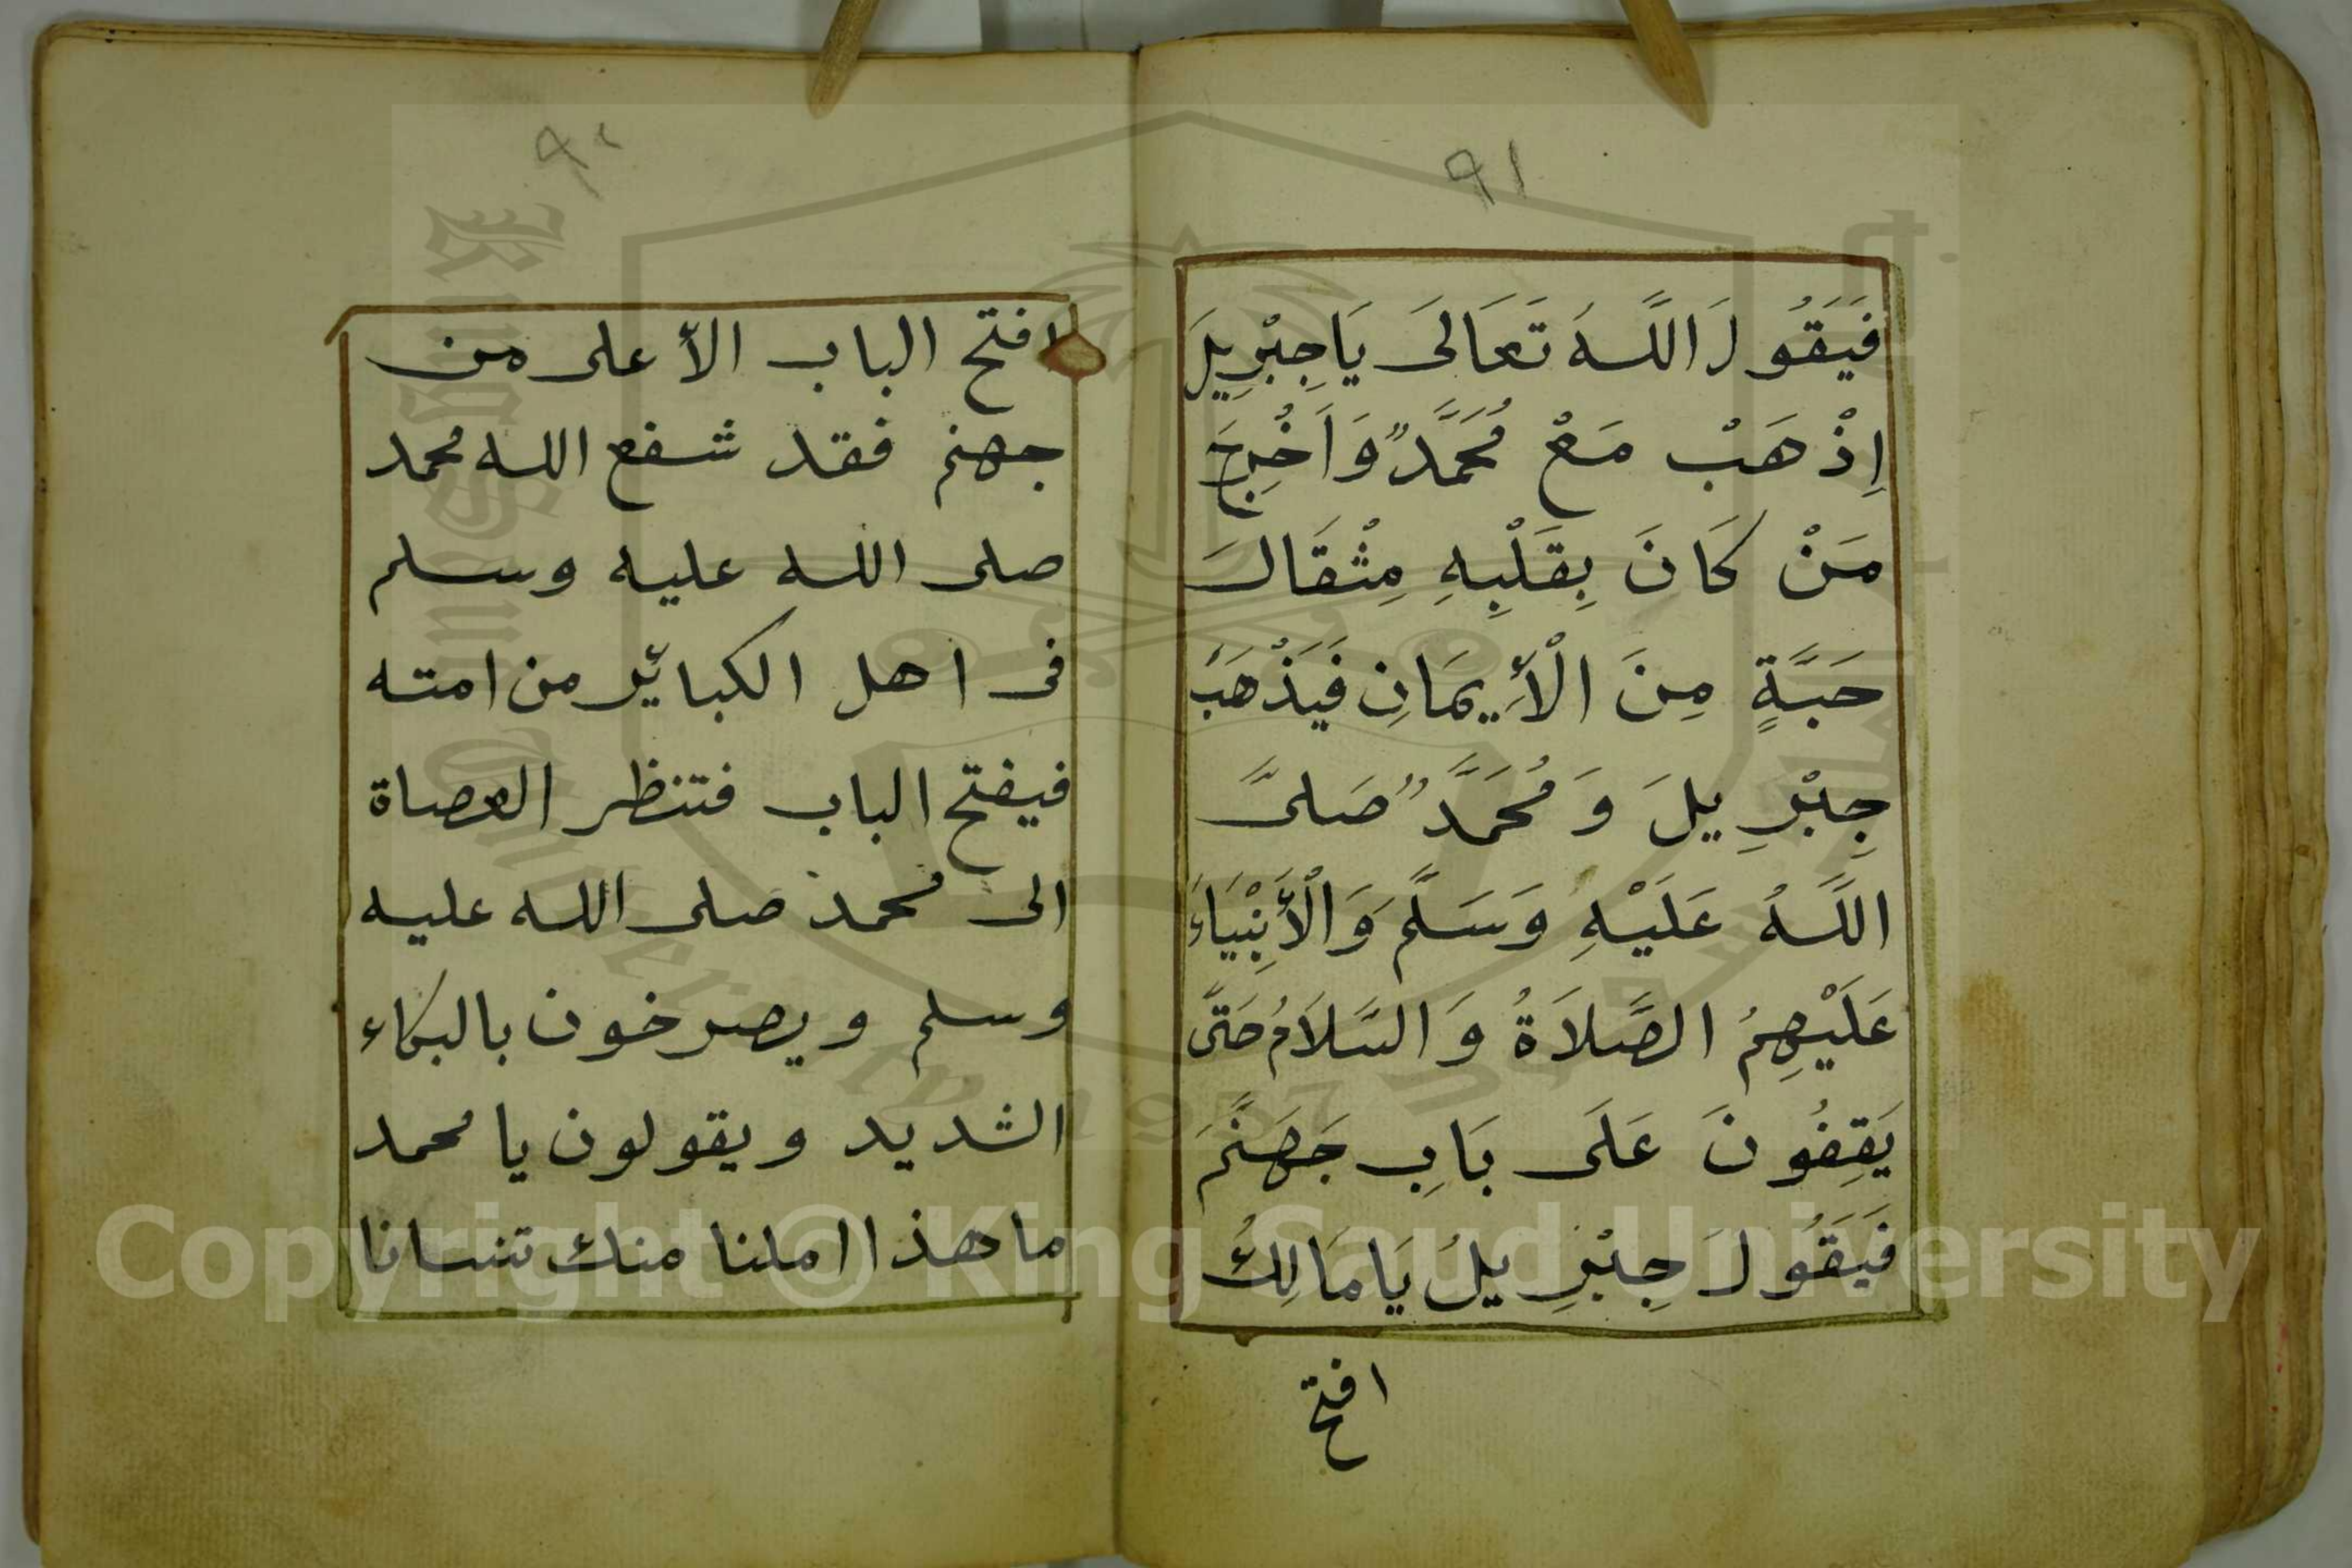 ٩١
فَيَقُولَ اللَّهَ تَعَالَى يَا جِبْرِيلَ
اِذْهَبْ مَعْ مُحَمَّدٌ وَاَخْرِجَ
مَنْ كَانَ بِقَلْبِهِ مِثْقَالَ
حَبَّةٍ مِنَ الْأَِيمَانِ فَيَذْهَبَ
جِبْرِيلَ وَمُحَمَّدٌ صَلىَّ
اللَّهُ عَلَيْهِ وَسَلَّمَ وَالْأَنْبِيَاءَ
عَلَيْهِمُ الصَّلَاةُ وَالسَّلَامُ حَتىَّ
يَقِفُونَ عَلَى بَابِ جَهَنَّمَ
فَيَقُولَ جِبْرِيلُ يَا مَالِكُ
افتح
افتح الباب الأعلى من
جهنم فقد شفع الله محمد
صلى الله عليه وسلم
فى اهل الكبائر من امته
فيفتح الباب فتنظر العصاة
الى محمد صلى الله عليه
وسلم ويصرخون بالبكاء
الشديد ويقولون يا محمد
ما هذا املنا منك تنسانا
Copyright © King Saud University